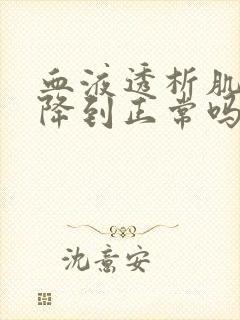 血液透析肌
降到正常吗
沈意安